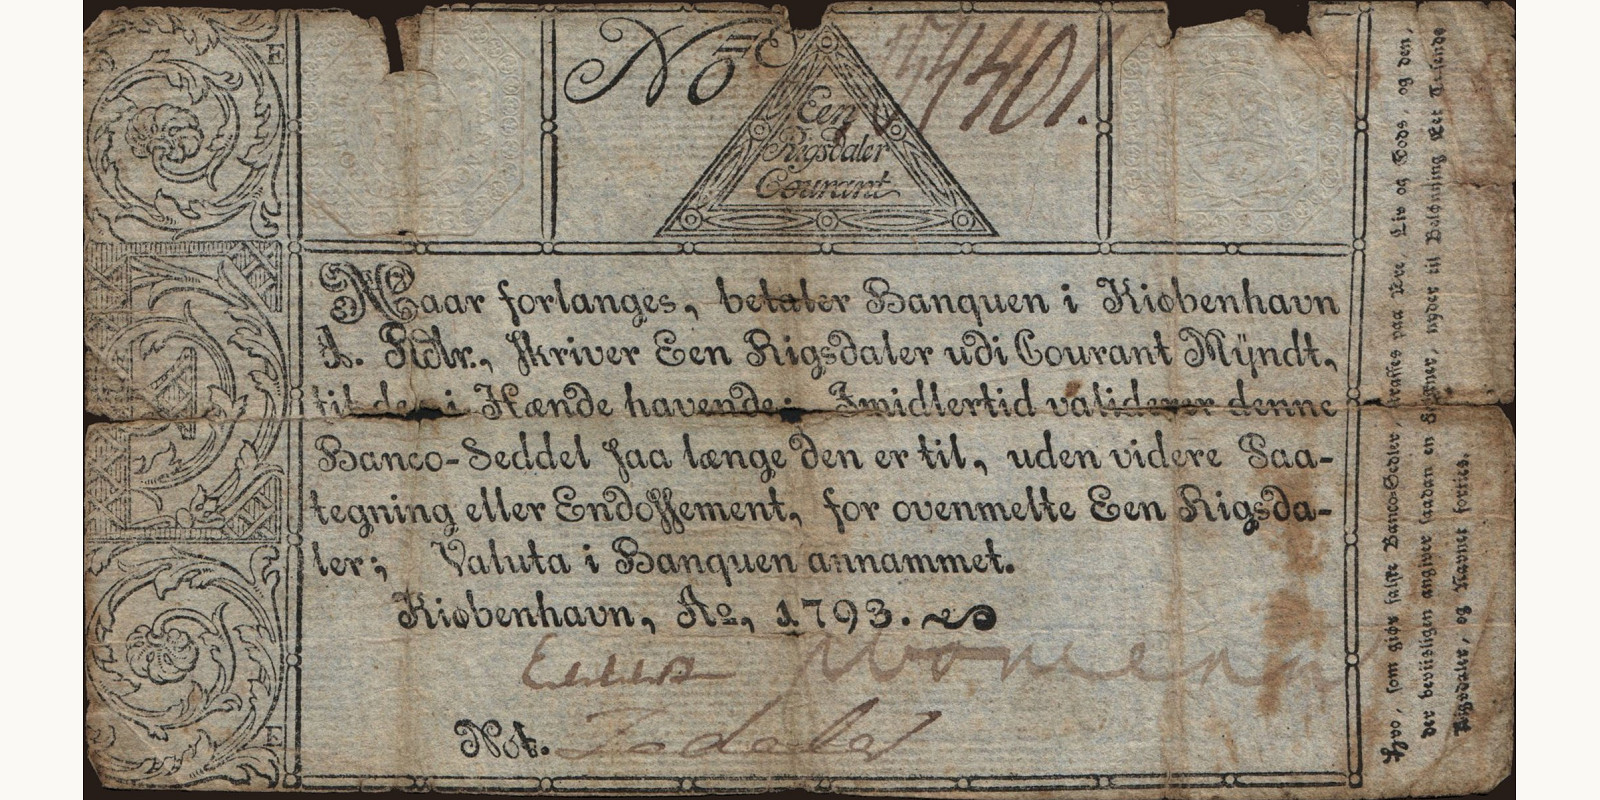 No
Een
Rigsdaler
Courant
Naar forlanges, betaler Banquen i Kiøbenhavn
Rdlr., skriver Een Rigsdaler udi Courant Mÿndt,
til den i Hænde havende: Imidlertid validerer denne
Banco-Seddel saa længe den er til, uden videre Paa-
tegning eller Endossement, for ovenmelte Een Rigsda-
ler; Valuta i Banquen annammet.
Kiøbenhavn, Ao, 1793.
Not.
som giør falske Banco-Sedler, straffes paa Ære, Liv og Gods, og den,
der beviisligen angiver saadan en nyder til Belønning Et Tusinde
Rigsdaler, og hans Navn forties.